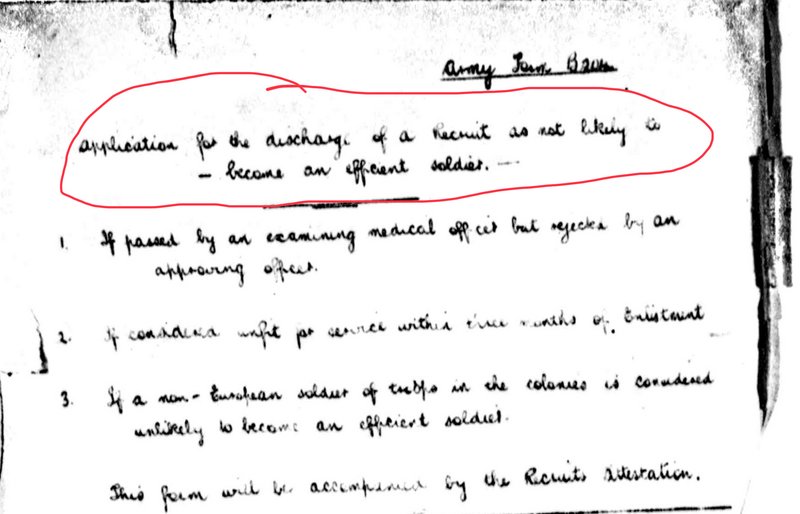 Army Form B204
Application for the discharge of a Recruit as not likely to
– become an efficient soldier. –
1. If passed by an examining medical officer but rejected by an
approving officer.
2. If considered unfit for service within three months of Enlistment
3. If a non-European soldier of troops in the colonies is considered
unlikely to become an efficient soldier.
This form will be accompanied by the Recruits Attestation.